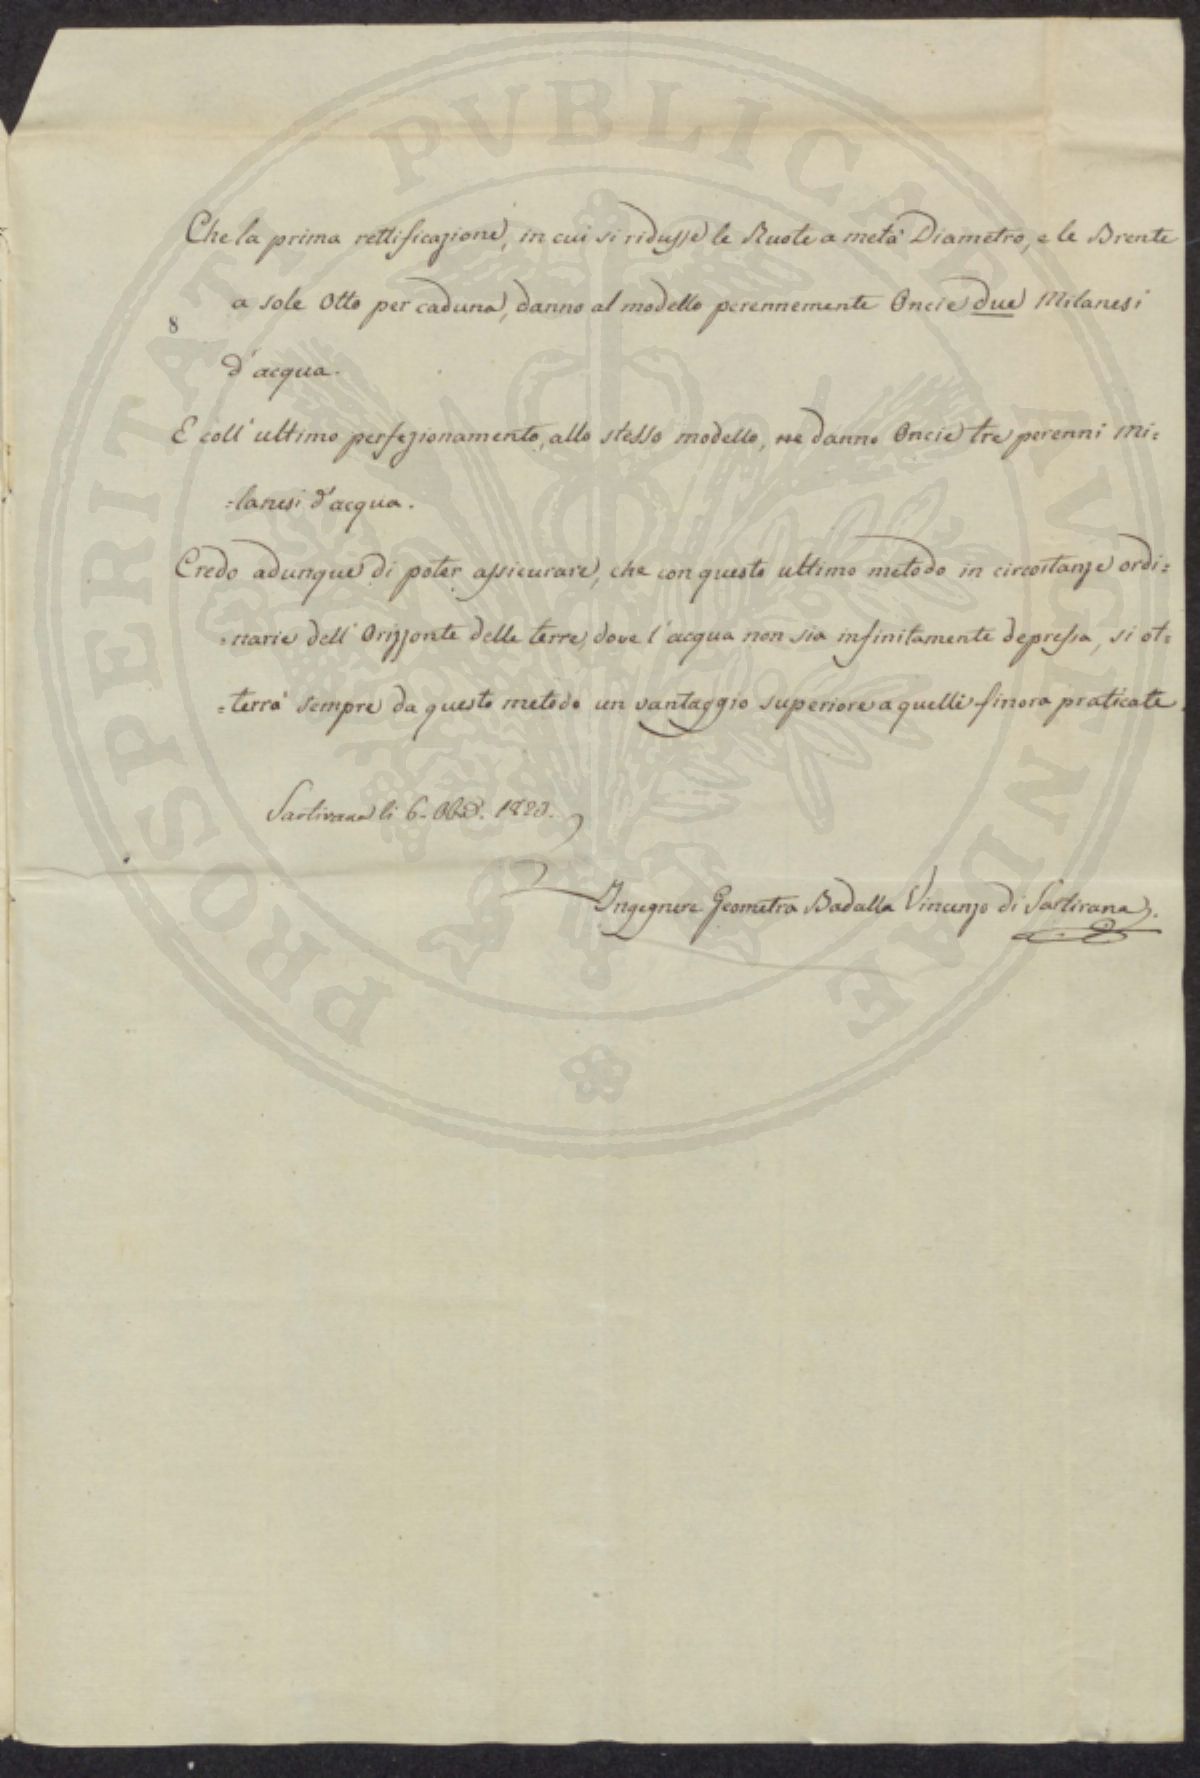 PROSPERITATI PVBLICAE AVGENDAE
Che la prima rettificazione, in cui si ridusse le Ruote a metà Diametro, e le Brente
a sole Otto per caduna, danno al modello perennemente Oncie due Milanesi
8
d'acqua.
E coll' ultimo perfezionamento, allo stesso modello, ne danno Oncie tre perenni Mi=
=lanesi d'acqua.
Credo adunque di poter assicurare, che con questo ultimo metodo in circostanze ordi=
=narie dell' Orizzonte delle terre, dove l'acqua non sia infinitamente depressa, si ot=
=terrà sempre da questo metodo un vantaggio superiore a quelli finora praticate
Sartirana li 6. 
Ingegnere Geometra Badalla Vincenzo di Sartirana.